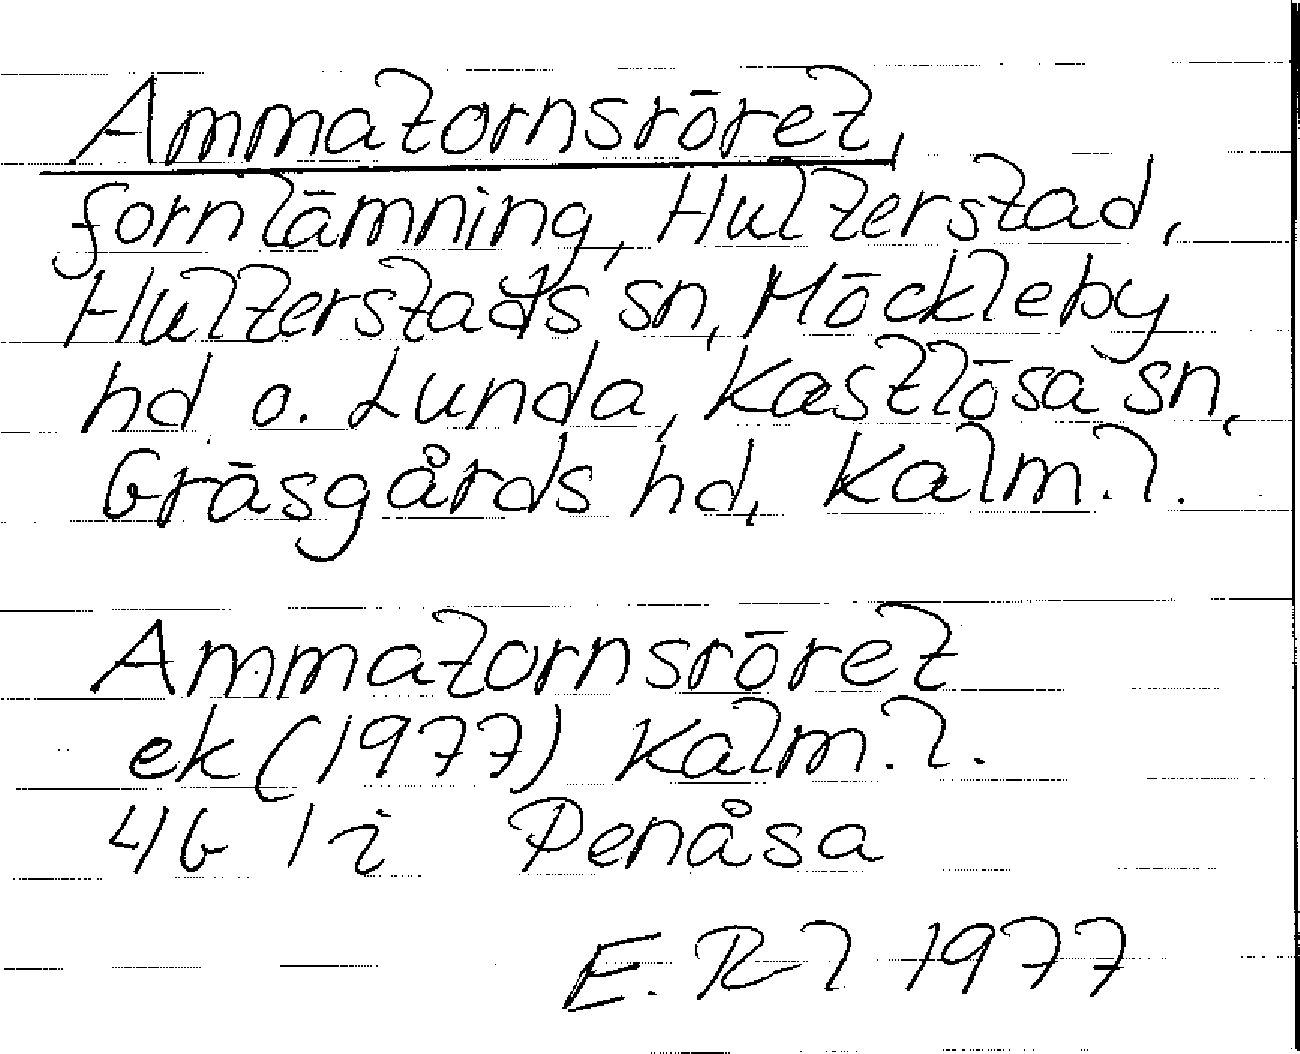 Ammatornsröret,
fornlämning, Hulterstad,
Hulterstads sn, Möckleby
hd o. Lunda, Kastlösa sn,
Gräsgårds hd, Kalm. l.
Ammatornsröret
ek (1977) Kalm. l.
4G 1i Penåsa
E. Rl 1977